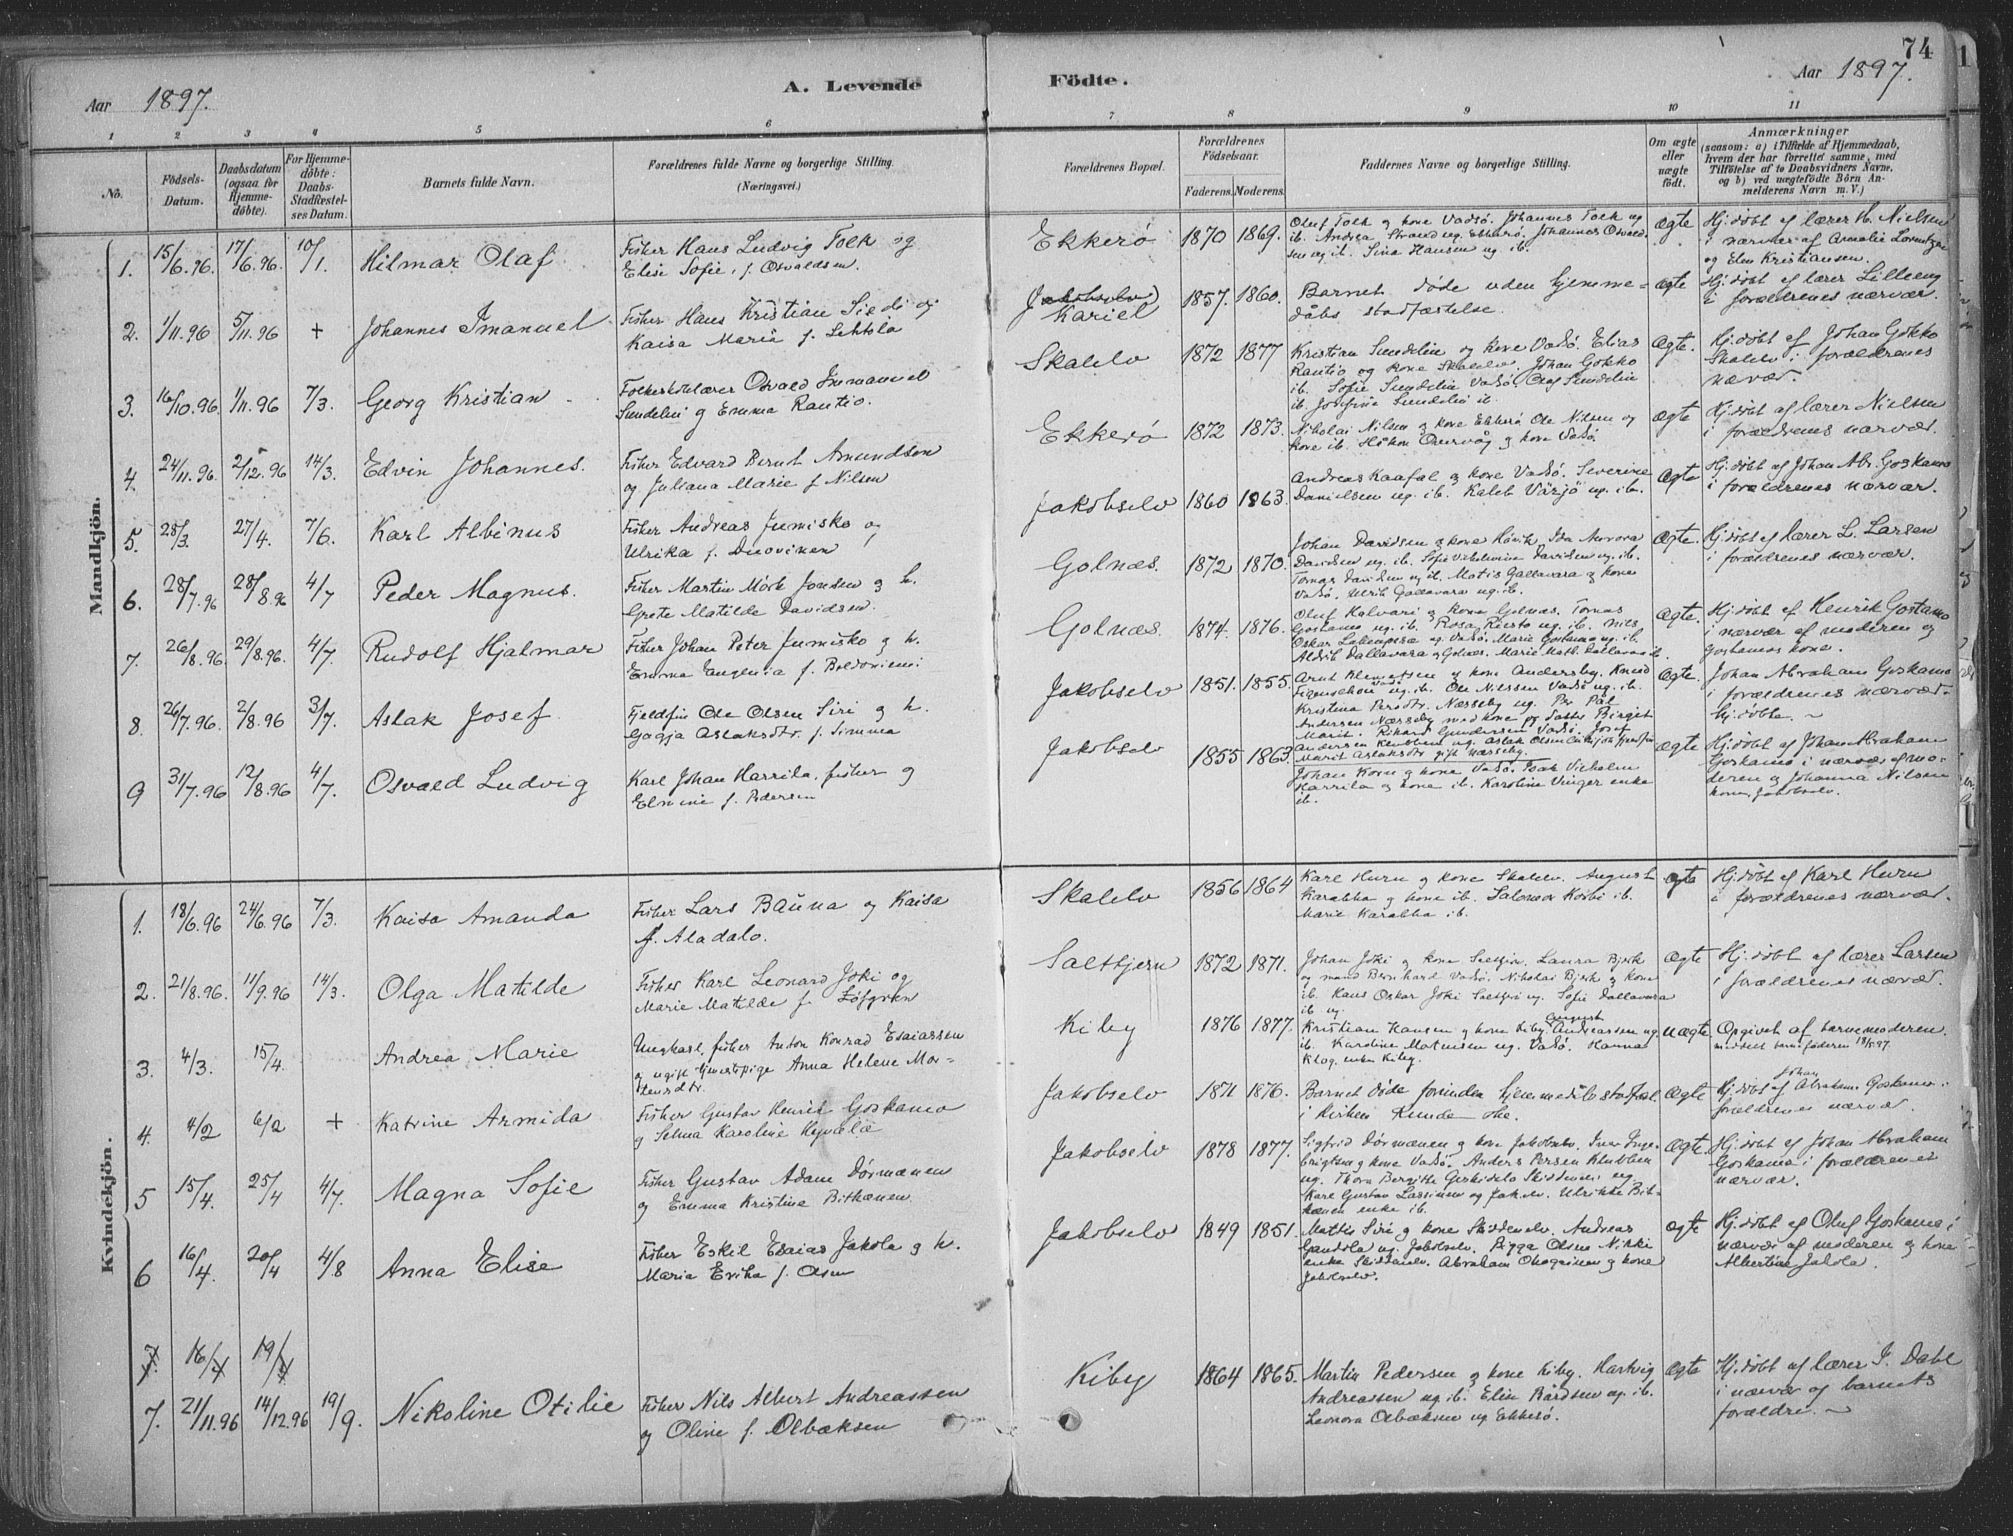 74
Aar 1897.
A. Levende
Födte.
Aar 1897.
1 2 3 4 5 6 7 8 9 10 11
No.
Födsels-
Datum.
Daabsdatum
(ogsaa for
Hjemme-
döbte).
For Hjemme-
döbte:
Daabs-
Stadfæstel-
ses Datum.
Barnets fulde Navn.
Forældrenes fulde Navne og borgerlige Stilling.
(Næringsvei.)
Forældrenes Bopæl.
Forældrenes
Födselsaar.
Faderens. Moderens.
Faddernes Navne og borgerlige Stilling.
Om ægte
eller
uægte
födt.
Anmærkninger
(saasom: a) i Tilfælde af Hjemmedaab,
hvem der har forrettet samme, med
Tilföielse af to Daabsvidners Navne,
og b) ved uægtefödte Börn An-
melderens Navn m. V.)
Mandkjön.
1. 15/6.96. 17/6.96. 10/1. Hilmar Olaf
Fisker Hans Ludvig Folk og
Elise Sofie, f. Osvaldsen.
Ekkerö 1870 1869.
Oluf Folk og kone Vadsö. Johannes Folk ug
ib. Andrea Strand ug. Ekkerö. Johannes Osvald-
sen ug ib. Sina Hansen ug ib.
Ægte
Hj.döbt af lærer H. Nielsen
i nærvær af Amalie Lorentzen
og Elen Kristiansen.
2. 1/11.96 5/11.96 + Johannes Imanuel
Fisker Hans Kristian Siedi og
Kaisa Maria f. Lehtola
(Jakobselv)
Kariel 1857. 1860.
Barnet döde uden hjemme-
dåbs stadfæstelse.
ægte
Hj.döbt af lærer Lilleeng
i forældrenes nærvær.
3. 16/10.96 1/11.96 7/3. Georg Kristian
Folkeskolelærer Osvald Immanuel
Sundelin g Emma Rantio.
Skalelv 1872 1877
Kristian Sundelin og kone Vadsö. Elias
Rantio og kone Skalelv. Johan Gokko
ib. Sofie Sundelin Vadsö Olaf Sundelin
ib Josefine Sundelin ib.
Ægte.
Hj.döbt af Johan Gokko
Skalelv i forældrenes
nærvær.
4. 24/11.96. 2/12.96 14/3. Edvin Johannes.
Fisker Edvard Bernt Amundsen
og Juliana Marie f Nilsen
Ekkerö 1872 1873.
Nikolai Nilsen g kone Ekkerö Ole Nilsen og
kone ib. Håkon Overvåg g kone Vadsö.
ægte
Hj.döbt af lærer Nielsen
i forældrenes nærvær.
5. 28/3. 27/4. 7/6. Karl Albinus
Fisker Andreas Junisko og
Ulrika f. Duovinen
Jakobselv 1860 1863
Andreas Kaafal g kone Vadsö. Severine
Danielsen ug. ib. Kaleb Värjö ug. ib.
Ægte
Hj.döbt af Johan Abr. Goskamo
i forældrenes nærvær.
6. 28/7.96 28/8.96 4/7 Peder Magnus.
Fisker Martin Mörk Jonsen g h.
Grete Matilde Davidsen.
Golnæs. 1872 1870.
Johan Davidsen g kone Ida Aurora
Davidsen ug. ib. Sofie Vilhelmine Davidsen ug. ib.
Tomas Davidsen ug ib. Matis Gallavara g kone
Vadsö. Ulrik Gallavara ug. ib.
Ægte.
Hj.döbt af lærer L. Larsen
i forældrenes nærvær.
7. 26/8.96. 29/8.96. 4/7. Rudolf Hjalmar
Fisker Johan Peter Junisko g h.
Emma Eugenia f.
Golnæs 1874. 1876.
Oluf Kalvari g kone Golnæs. Tomas
Goskamo ug. ib. Rosa ug. ib. Nils
Oskar ug. Vadsö. Marie Goskamo ug. ib.
Aldrik Dallavara g Golnæs. Marie Math. Dallavara ib.
Ægte.
Hj.döbt af Henrik Goskamo
i nærvær af moderen og
Goskamos kone.
8. 26/7.96. 2/8.96 3/7. Aslak Josef
Fjeldfin Ole Olsen Siri g h.
Gagja Aslaksdtr. f. Simma
Jakobselv 1851. 1855.
Arnt Klemetsen g kone Andersby. Knud
ug. ib. Ole Nilssen Vadsö ug. ib.
Kristina Persdtr. Næsseby ug. Per Pål
Andersen Næsseby med kone og datter Birgit
Marit. Rikard Gundersen Vadsö. Josef
Andersen Klubben ug. Aslak Olsen
Marit Aslaksdtr gift Næsseby.
Ægte.
Johan Abraham Goskamo
i forældrenes nærvær
hj.döbte.
9 31/7.96 12/8.96 4/7. Osvald Ludvig
Karl Johan Harrila, fisker og
Elmine f. Pedersen
Jakobselv 1855 1863
Johan Korn g kone Vadsö. Isak Vilhelm
Harrila og kone ib. Karoline Vinger enke
ib.
Ægte
Hj.döbt af Johan Abraham
Goskamo i nærvær af mo-
deren g Johanna Nilsen
kone, Jakobselv.
Kvindekjön.
1. 18/6.96 24/6.96 7/3. Kaisa Amanda
Fisker Lars Bauna og Kaisa
f. Aladalo.
Skalelv 1856 1864
Karl Huru g kone Skalelv. August
Karabba g kone ib. Salomon Korbi ib.
Marie Karabba ib.
ægte
Hj.döbt af Karl Huru
i forældrenes nærvær.
2. 21/8.96. 11/9.96 14/3. Olga Matilde
Fisker Karl Leonard Joki og
Marie Matilde f. Löfgren
Saltbjern 1872 1871.
Johan Joki g kone Saltbjern. Laura Bjerk
og mand Bernhard Vadsö. Nikolai Bjerk g kone
ib. Hans Oskar Joki ug. Sofie Dallavara
ib ug.
Ægte
Hj.döbt af lærer Larsen
i forældrenes nærvær.
3. 4/3. 15/4. Andrea Marie
Ungkarl, fisker Anton Konrad Esaiassen
g ugift tjenestepige Anna Helene Mor-
tensdtr.
Kiby 1876 1877.
August
Kristian Hansen g kone Kiby. Andreassen ug.
ib. Karoline Matnisen ug. Vadsö. Hanna
Klog. enke Kiby.
uægte.
Opgivet af barnemoderen.
meddelt barnefaderen 18/5 97.
4. 4/2 6/2 + Katrine Armida
Fisker Gustav Henrik Goskamo
g Selma Karoline
Jakobselv 1871 1876.
Barnet döde forinden hjemmedåb stadfæst.
i kirken kunde ske.
Ægte
Johan
Hj.döbt af Abraham Goskamo i
forældrenes nærvær.
5 15/4. 25/4 4/7 Magna Sofie
Fisker Gustav Adam Dörmænen
og Emma Kristine Bitkænen
Jakobselv 1878 1877.
Sigfrid Dörmænen g kone Jakobselv. Iver Inge-
brigtsen g kone Vadsö. Anders Persen Klubben
ug. Thora Bergitte Skiddenes ug.
Karl Gustav Lassinen ug Jak.elv. Ulrikke Bit-
kænen enke ib.
Ægte.
Hj.döbt af Johan Abraham
Goskamo i forældrenes
nærvær.
6 16/4. 20/4 4/8 Anna Elise
Fisker Eskil Esaias Jakola g h.
Maria Erika f. Olsen
Jakobselv 1849 1851.
Mattis Siri g kone Skiddenelv. Andreas
Gandola ug. Jakobselv. Pigga Olsen Nikki
enke Skiddenelv. Abraham g kone
Jakobselv.
ægte
Hj.döbt af Oluf Goskamo i
nærvær af moderen g kone
Albertine Jakola.
7. 16/4 19/4
7. 21/11.96 14/12.96 19/9. Nikoline Otilie
Fisker Nils Albert Andreassen
og Oline f. Olbæksen
Kiby 1864 1865.
Martin Pedersen g kone Kiby. Hartvig
Andreassen ug ib. Elise Bårdsen ug. ib.
Leonora Olbæksen ug Ekkerö.
Ægte
Hj.döbt af lærer J. Dahl
i nærvær og barnets
forældre.